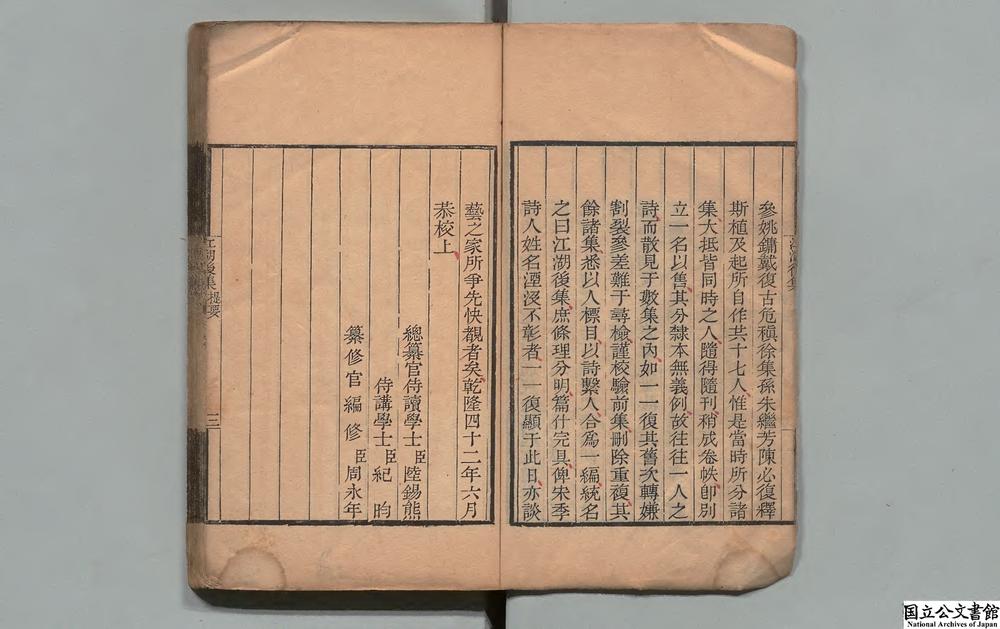 參姚鏞戴復古危稹徐集孫朱繼芳陳必復釋
斯植及起所自作共十七人惟是當時所分諸
集大抵皆同時之人隨得隨刊稍成卷帙卽別
立一名以售其分隸本無義例故往往一人之
詩而散見于數集之內如一一復其舊次轉嫌
割裂參差難于尋檢謹校驗前集刪除重複其
餘諸集悉以人標目以詩繫人合爲一編統名
之曰江湖後集庶條理分明篇什完具俾宋季
詩人姓名湮沒不彰者一一復顯于此日亦談
藝之家所爭先快覩者矣乾隆四十二年六月
恭校上
總纂官侍讀學士臣陸錫熊
侍講學士臣紀昀
纂修官編修臣周永年
江湖後集 提要
三
国立公文書館
National Archives of Japan